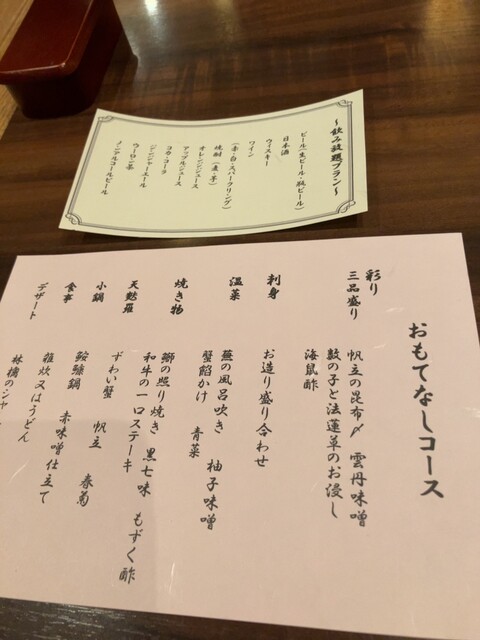 ～飲み放題プラン～
ビール(生ビール・瓶ビール)
日本酒
ウィスキー
ワイン
(赤・白・スパークリング)
焼酎(麦・芋)
オレンジジュース
アップルジュース
コカ・コーラ
ジンジャーエール
ウーロン茶
ノンアルコールビール
おもてなしコース
彩り
三品盛り
帆立の昆布〆 雲丹味噌
数の子と法蓮草のお浸し
海鼠酢
刺身
お造り盛り合わせ
温菜
蕪の風呂吹き 柚子味噌
蟹餡かけ 青菜
焼き物
鰤の照り焼き 黒七味
和牛の一口ステーキ もずく酢
天麩羅
ずわい蟹 帆立 春菊
小鍋
鮟鱇鍋 赤味噌仕立て
食事
雑炊又はうどん
デザート
林檎のシャ